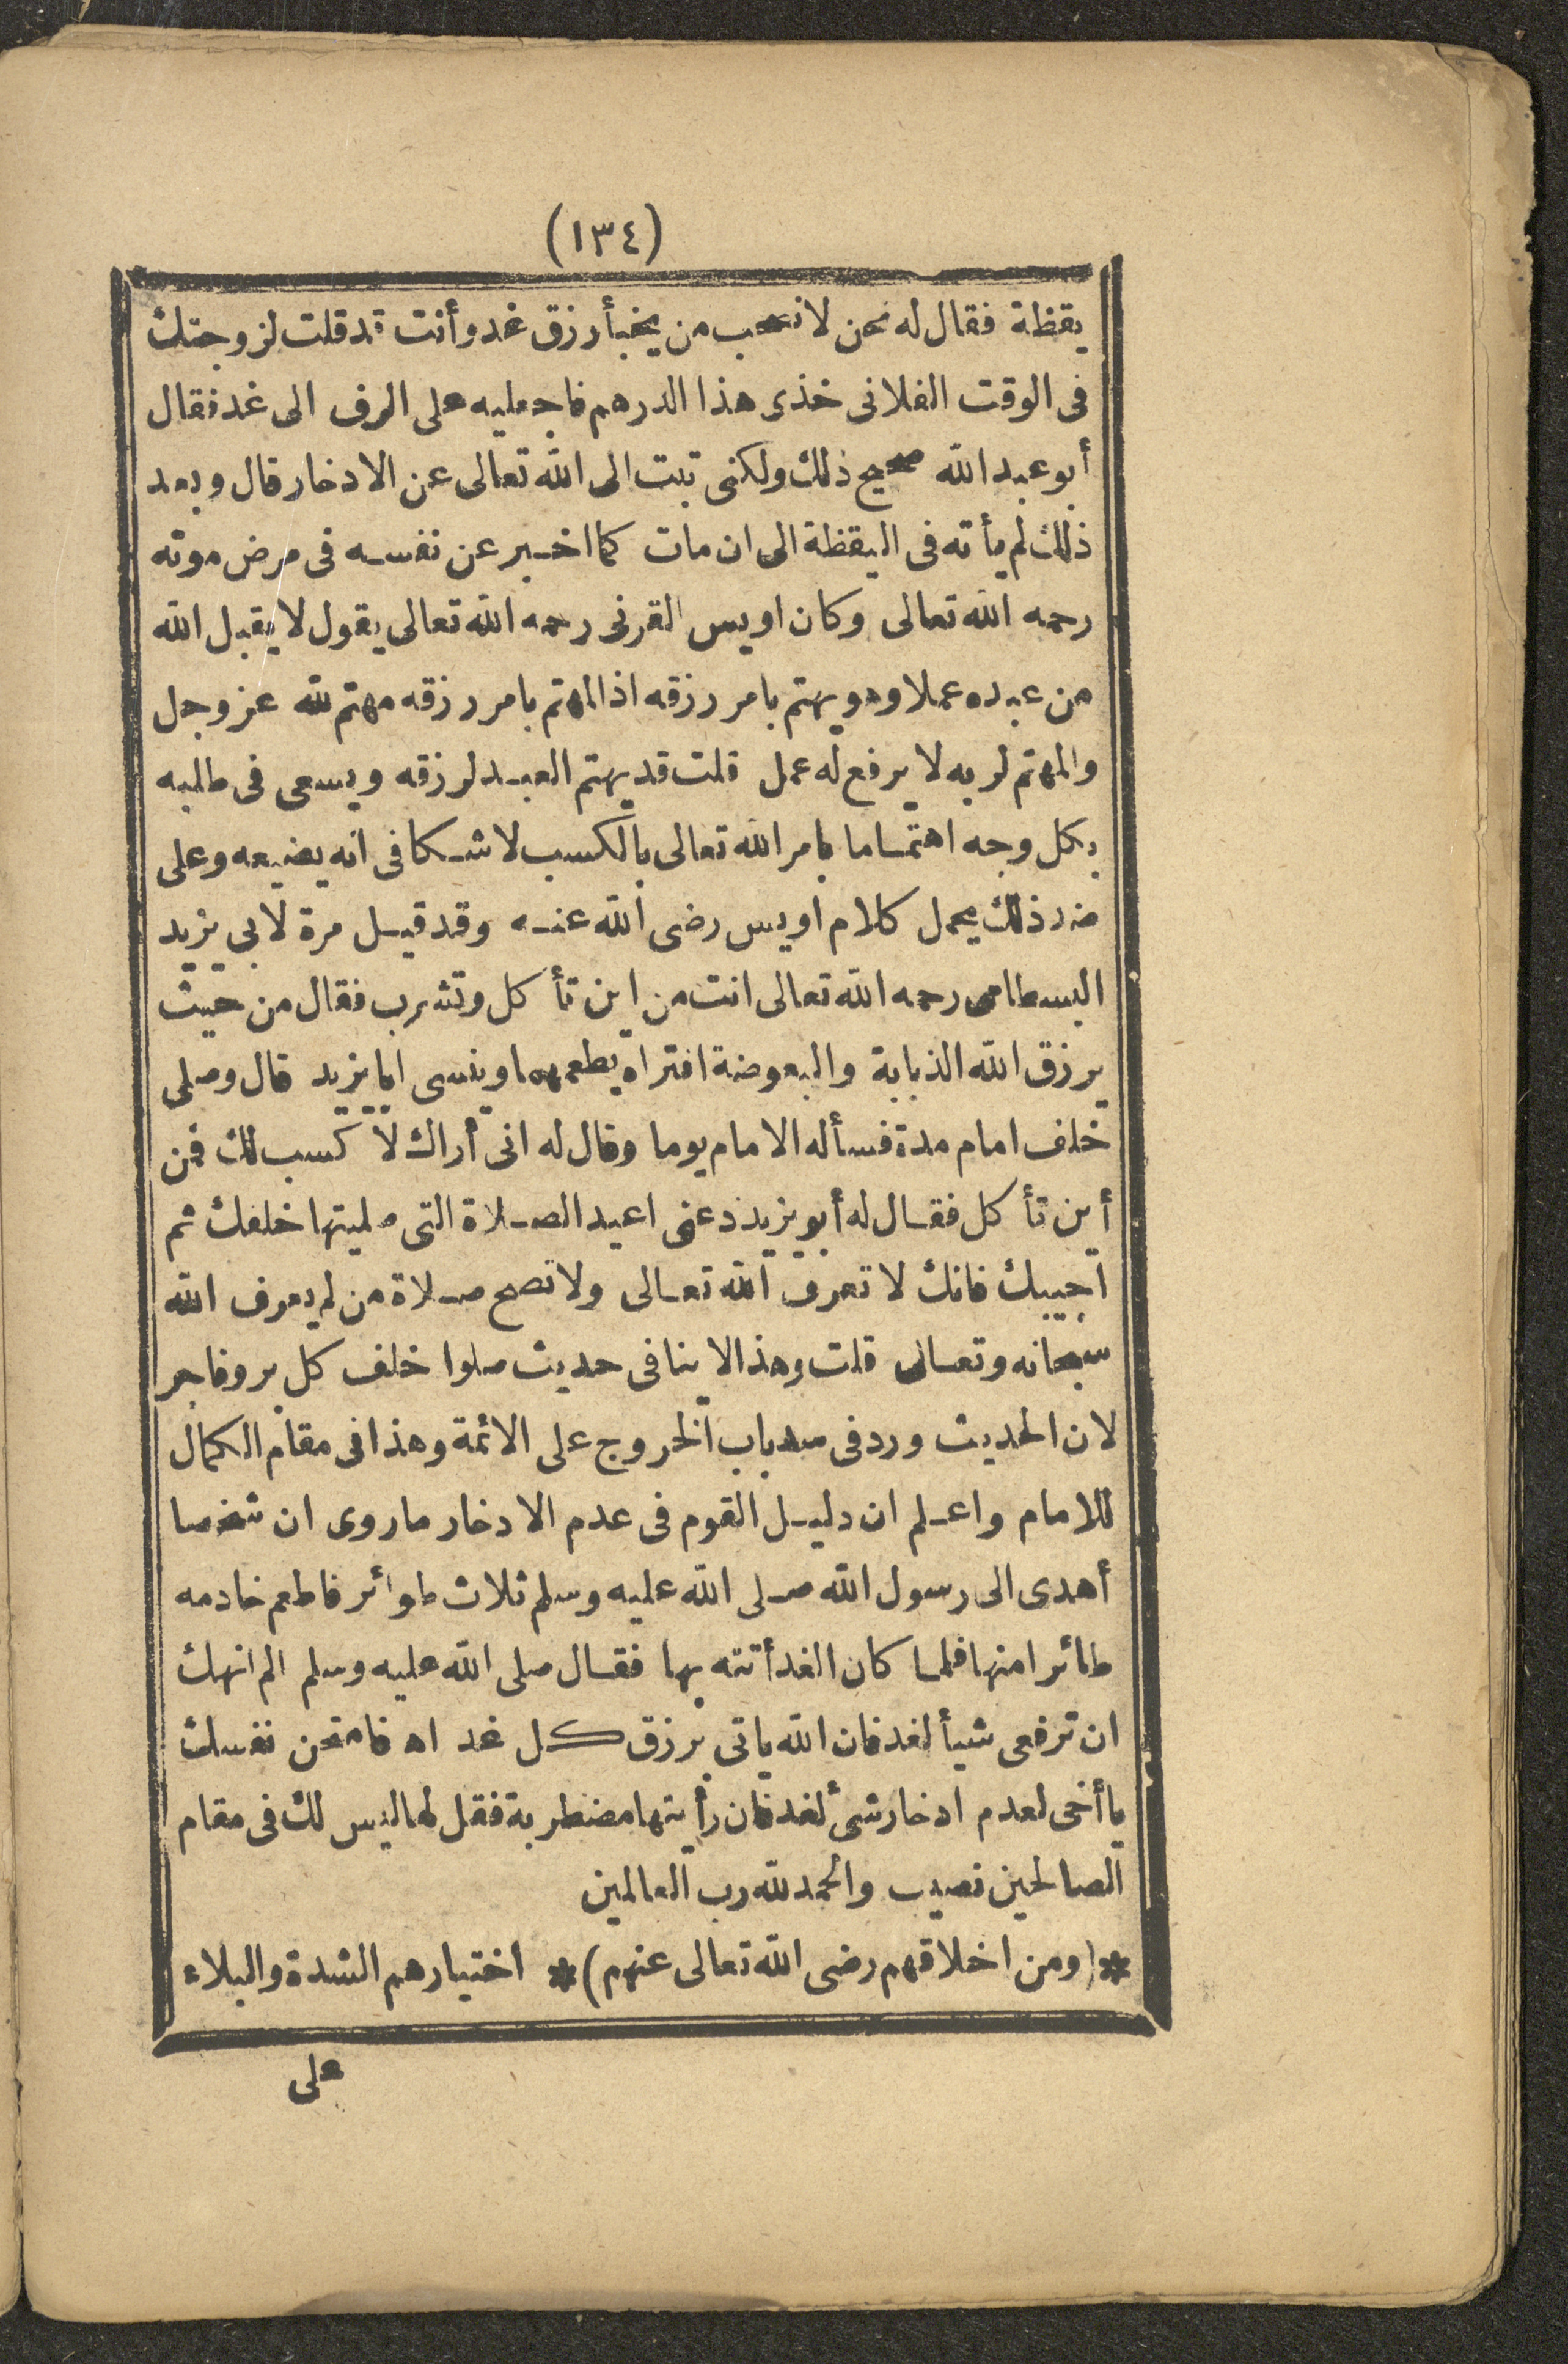 (١٣٤)
يقظة فقال له نحن لا نصحب من يخبأ رزق غد وأنت قد قلت لزوجتك
فى الوقت الفلانى خذى هذا الدرهم فاجعليه على الرف الى غد فقال
أبو عبد الله صحيح ذلك ولكنى تبت الى الله تعالى عن الادخار قال وبعد
ذلك لم يأته فى اليقظة الى ان مات كما اخبر عن نفسه فى مرض موته
رحمه الله تعالى وكان اويس القرنى رحمه الله تعالى يقول لا يقبل الله
من عبده عملا وهو يهتم بامر رزقه اذ المهتم بامر رزقه مهتم لله عز وجل
والمهتم لربه لا يرفع له عمل قلت قد يهتم العبد لرزقه ويسعى فى طلبه
بكل وجه اهتماما بامر الله تعالى بالكسب لا شكا فى انه يضيعه وعلى
ضد ذلك يحمل كلام اويس رضى الله عنه وقد قيل مرة لابى يزيد
البسطامى رحمه الله تعالى انت من اين تأكل وتشرب فقال من حيث
يرزق الله الذبابة والبعوضة افتراه يطعمهما وينسى ابا يزيد قال وصلى
خلف امام مدة فسأله الامام يوما وقال له انى أراك لا كسب لك فمن
أين تأكل فقال له أبو يزيد دعنى اعيد الصلاة التى صليتها خلفك ثم
اجيبك فانك لا تعرف الله تعالى ولا تصح صلاة من لم يعرف الله
سبحانه وتعالى قلت وهذا لا ينافى حديث صلوا خلف كل بر وفاجر
لان الحديث ورد فى سد باب الخروج على الائمة وهذا فى مقام الكمال
للامام واعلم ان دليل القوم فى عدم الادخار ما روى ان شخصا
أهدى الى رسول الله صلى الله عليه وسلم ثلاث طوائر فاطعم خادمه
طائرا منها فلما كان الغد أتته بها فقال صلى الله عليه وسلم الم انهك
ان ترفعى شيأ لغد فان الله ياتى برزق كل غد اه فامتحن نفسك
يا أخى لعدم ادخار شئ لغد فان رأيتها مضطربة فقل لها ليس لك فى مقام
الصالحين نصيب والحمد لله رب العالمين
*(ومن اخلاقهم رضى الله تعالى عنهم)* اختيارهم الشدة والبلاء
على